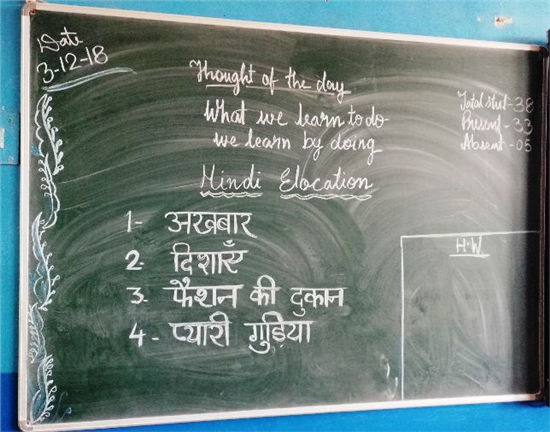 Date
3-12-18
Thought of the day
What we learn to do
we learn by doing
Total stud - 38
Present - 33
Absent - 05
Hindi Elocation
1- अखबार
2- दिशाएँ
3- फैशन की दुकान
4- प्यारी गुड़िया
H.W